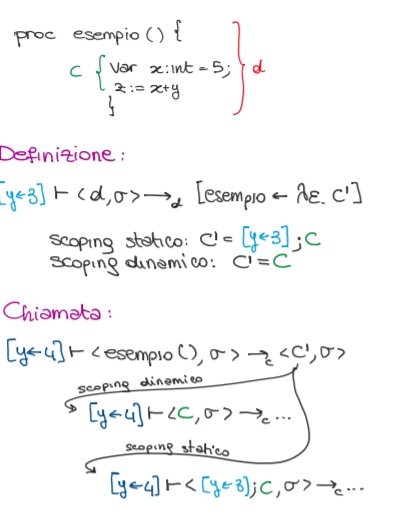 proc esempio () {
C { var x:int = 5;
z := x+y
} } d
Definizione:
[y←3] ⊢ <d,σ> →d [esempio ← λε. C']
scoping statico: C' = [y←3];C
scoping dinamico: C' = C
Chiamata:
[y←4] ⊢ <esempio(), σ> →c <C',σ>
scoping dinamico
[y←4] ⊢ <C,σ> →c ...
scoping statico
[y←4] ⊢ <[y←3];C,σ> →c ...